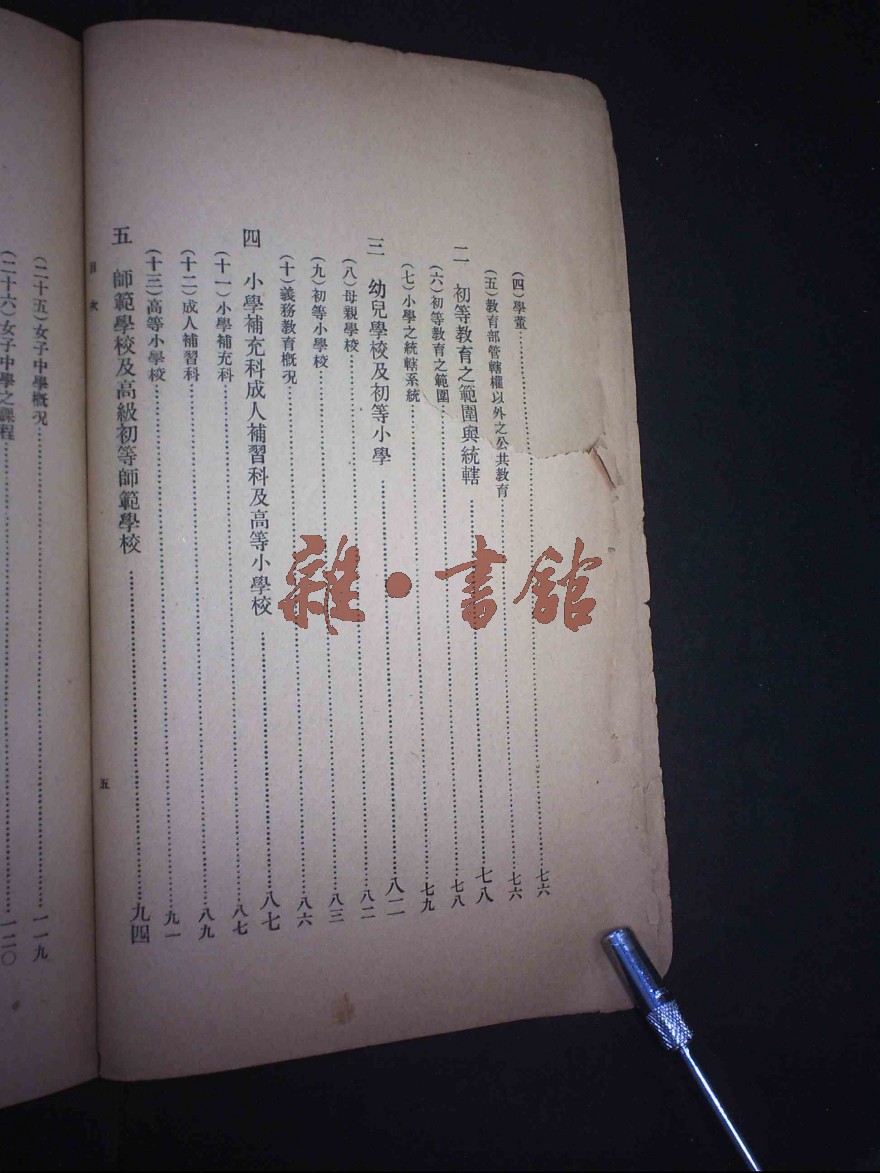 (四)學董……七六
(五)教育部管轄權以外之公共教育……七六
二 初等教育之範圍與統轄……七八
(六)初等教育之範圍……七八
(七)小學之統轄系統……七九
三 幼兒學校及初等小學……八二
(八)母親學校……八二
(九)初等小學校……八三
(十)義務教育概況……八六
四 小學補充科成人補習科及高等小學校……八七
(十一)小學補充科……八七
(十二)成人補習科……八九
(十三)高等小學校……九一
五 師範學校及高級初等師範學校……九四
目次
五
(二十五)女子中學概況……一一九
(二十六)女子中學之課程……一二〇
雜·書館